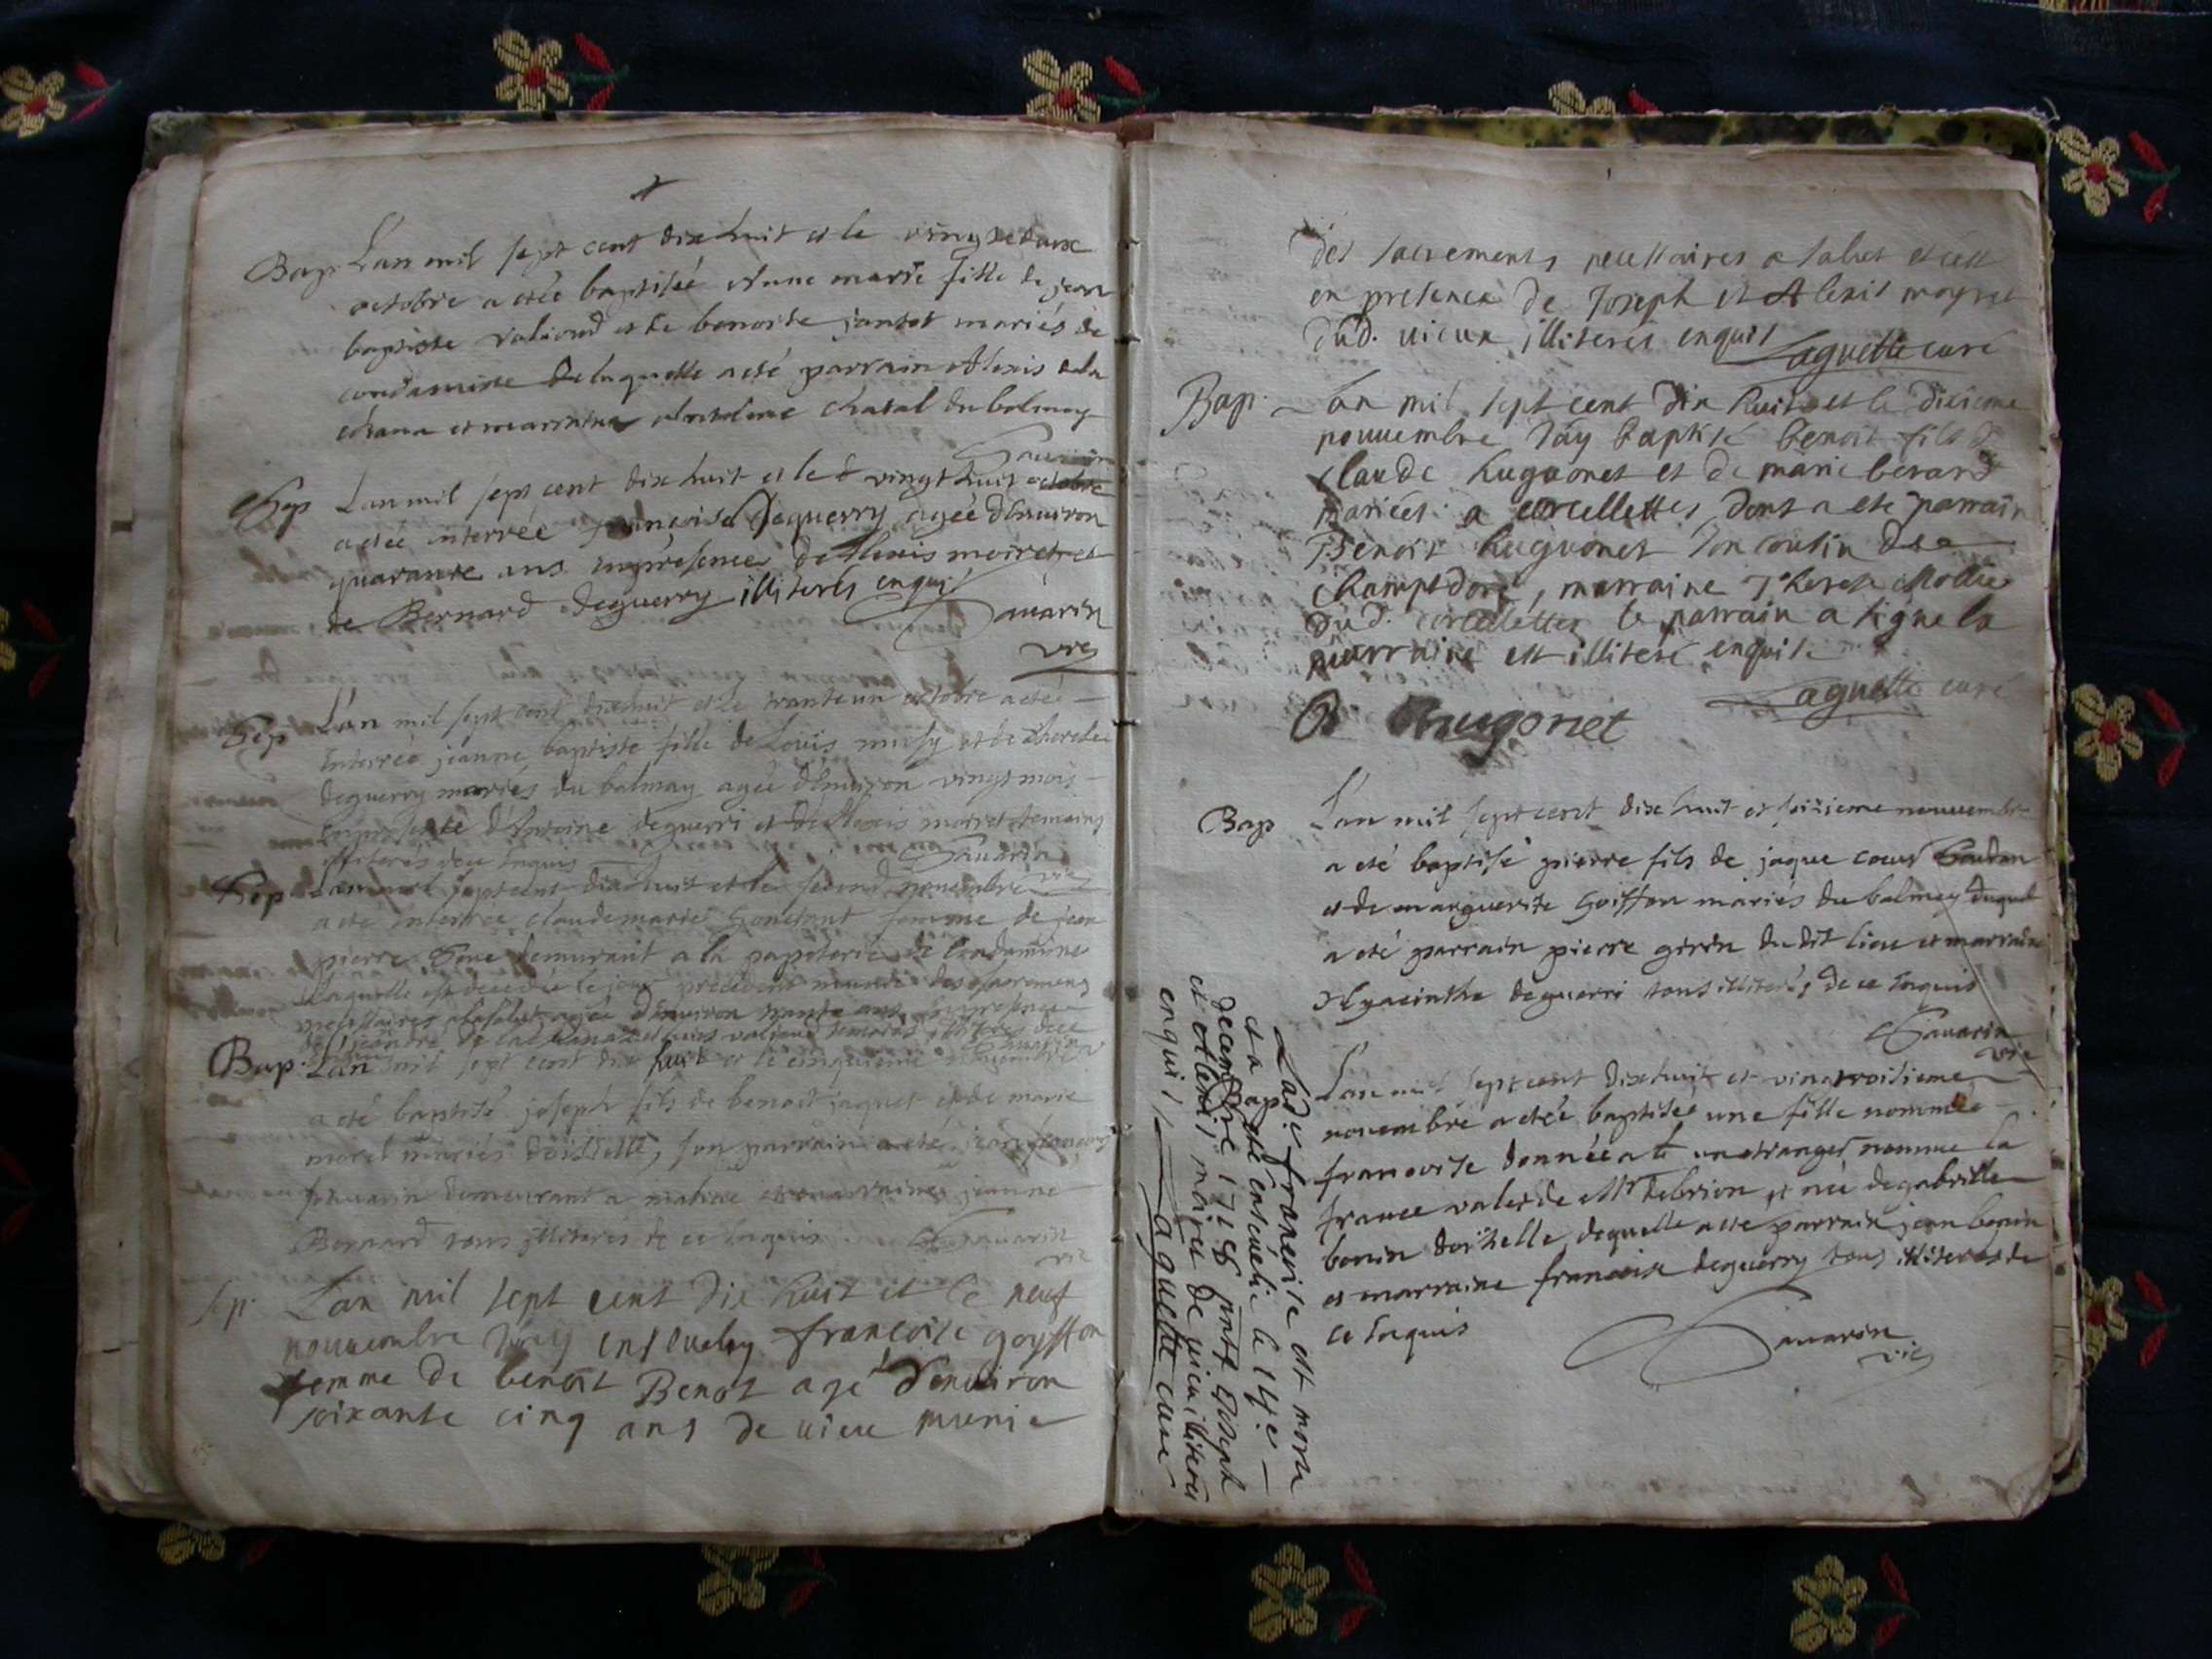 Bap. L'an mil sept cent dix huit et le vingt deux
octobre a etée baptisée Anne marie fille de jean
baptiste valioud et de benoite jantet mariés de
condamine de laquelle a eté parrain Alexis de la
chana et marraine chaval du balmay
Sauarin
Sep L'an mil sept cent dix huit et le vingt huit octobre
a etée interrée françoise Deguerry agée d'enuiron
quarante ans en presence de Alexis moiret et
de Bernard deguerry illiterés enquis
Sauarin
vre
Sep L'an mil sept cent dixhuit et le trante un octobre a etée
interrée jeanne baptiste fille de Louis et de Therese
deguerry mariés du balmay agée d'enuiron vingt mois
en presence d'Antoine deguerri et de Alexis moiret temoins
illiterés de ce enquis Sauarin
vre
Sep L'an mil sept cent dix huit et le second novembre
a eté interrée claudemarie femme de jean
pierre demurant a la papeterie de Condamine
laquelle est decedée le jour precedent munie des sacremens
necessaires a salut agée d'enuiron trante ans en presence
de de la chana et louis valioud temoins illiterés de ce
Bap. L'an mil sept cent dix huit et le cinquieme novembre
a eté baptisé joseph fils de benoit jaquet et de marie
morel mariés doisselle, son parrain a eté jean françois
sauarin demeurant a et marraine jeanne
Bernard tous illiterés de ce enquis Sauarin
vre
Sep. L'an mil sept cent dix huit et le neuf
nouuembre J'ay enseuely françoise goyffon
femme de benoit Benoit agé d'enuiron
soixante cinq ans de uieu munie
des sacrements necessaires a salut et cest
en presence de Joseph et Alexis moyret
dud. uieux illiterés enquis
Laguette curé
Bap. L'an mil sept cent dix huit et le dixieme
nouuembre J'ay baptisé benoit fils de
claude huguonet et de marie berard
mariés a corcellettes dont a eté parrain
Benoit huguonet son cousin de
champdor, marraine Therese Mollie
dud. corcellettes le parrain a signe la
marraine est illiteré enquise
Laguette curé
B hugonet
Bap L'an mil sept cent dix huit et seizieme nouuembre
a eté baptisé pierre fils de jaque coeur
et de marguerite Goiffon mariés du balmay duquel
a eté parrain pierre girin du dit lieu et marraine
Hyacinthe deguerri tous illiterés de ce enquis
Sauarin
vre
Bap L'an mil sept cent dixhuit et vingtroisieme
nouembre a etée baptisée une fille nommée
francoise donnée a un etranger nomme la
france valet de Mr debrion et née de gabrielle
bonin doisselle, dequelle a eté parrain jean bonin
et marraine francoise deguerry tous illiteres de
ce enquis
Sauarin
vre
Ladi. francoise est morte
et a eté enseuelie le 14e
decembre 1718 pnts Joseph
et Alexis moiret de uieu illiterés
enquis, Laguette curé